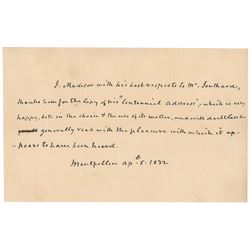 J. Madison with his best respects to Mr. Southard,
thanks him for the Copy of his "Centennial Address", which is very
happy, both in the choice & the use of its matter, and will doubtless be
generally read with the pleasure with which it ap-
-pears to have been heard.
Montpellier Apl. 8. 1832